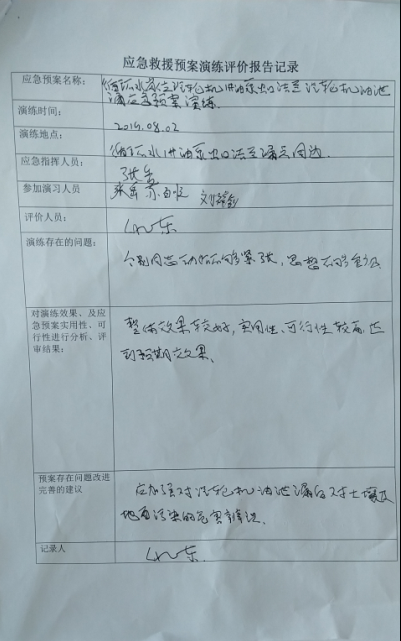 应急救援预案演练评价报告记录
应急预案名称：
循环水岗位汽轮机油泵出口法兰汽轮机油池
漏应急预案演练
演练时间：
2019.08.02
演练地点：
循环水油泵出口法兰漏点周边
应急指挥人员：
张
参加演习人员
评价人员：
演练存在的问题：
个别同志动作不够紧张，思想不够重视
对演练效果、及应
急预案实用性、可
行性进行分析、评
审结果：
整体效果较好，实用性、可行性较高达
到预期效果。
预案存在问题改进
完善的建议
应加强对汽轮机油泄漏后对土壤及
地面污染的危害情况
记录人